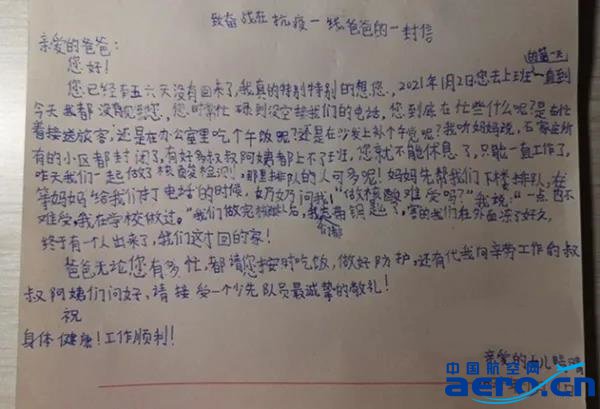 致奋战在抗疫一线爸爸的一封信
亲爱的爸爸:
您好!
您已经有五六天没有回来了,我真的特别特别的想您.,2021年1月2日您去上班的第一天一直到
今天我都没有见到您,您时常忙碌到没空接我们的电话,您到底在忙些什么呢?是在忙
着接送旅客,还是在办公室里吃个午饭呢?还是在沙发上补个午觉呢?我听妈妈说,石家庄所
有的小区都封闭了,有好多叔叔阿姨都上不了班,您就不能休息了,只能一直工作了,
昨天我们一起做了核酸检测!哪里排队的人可多呢!妈妈先帮我们下楼排队,在
等妈妈给我们打电话的时候,奶奶问我:"做核酸难受吗?"我说:"一点也不
难受,我在学校做过。"我们做完核酸后,我忘带钥匙了,害的我们在外面冻了好久,
终于有一个人出来了,我们这才回的家!
爸爸无论您有多忙,都请您按时吃饭,做好防护,还有代我向辛劳工作的叔
叔阿姨们问好,请接受一个少先队员最诚挚的敬礼!
祝
身体健康!工作顺利!
亲爱的
中国航空网
aero.cn